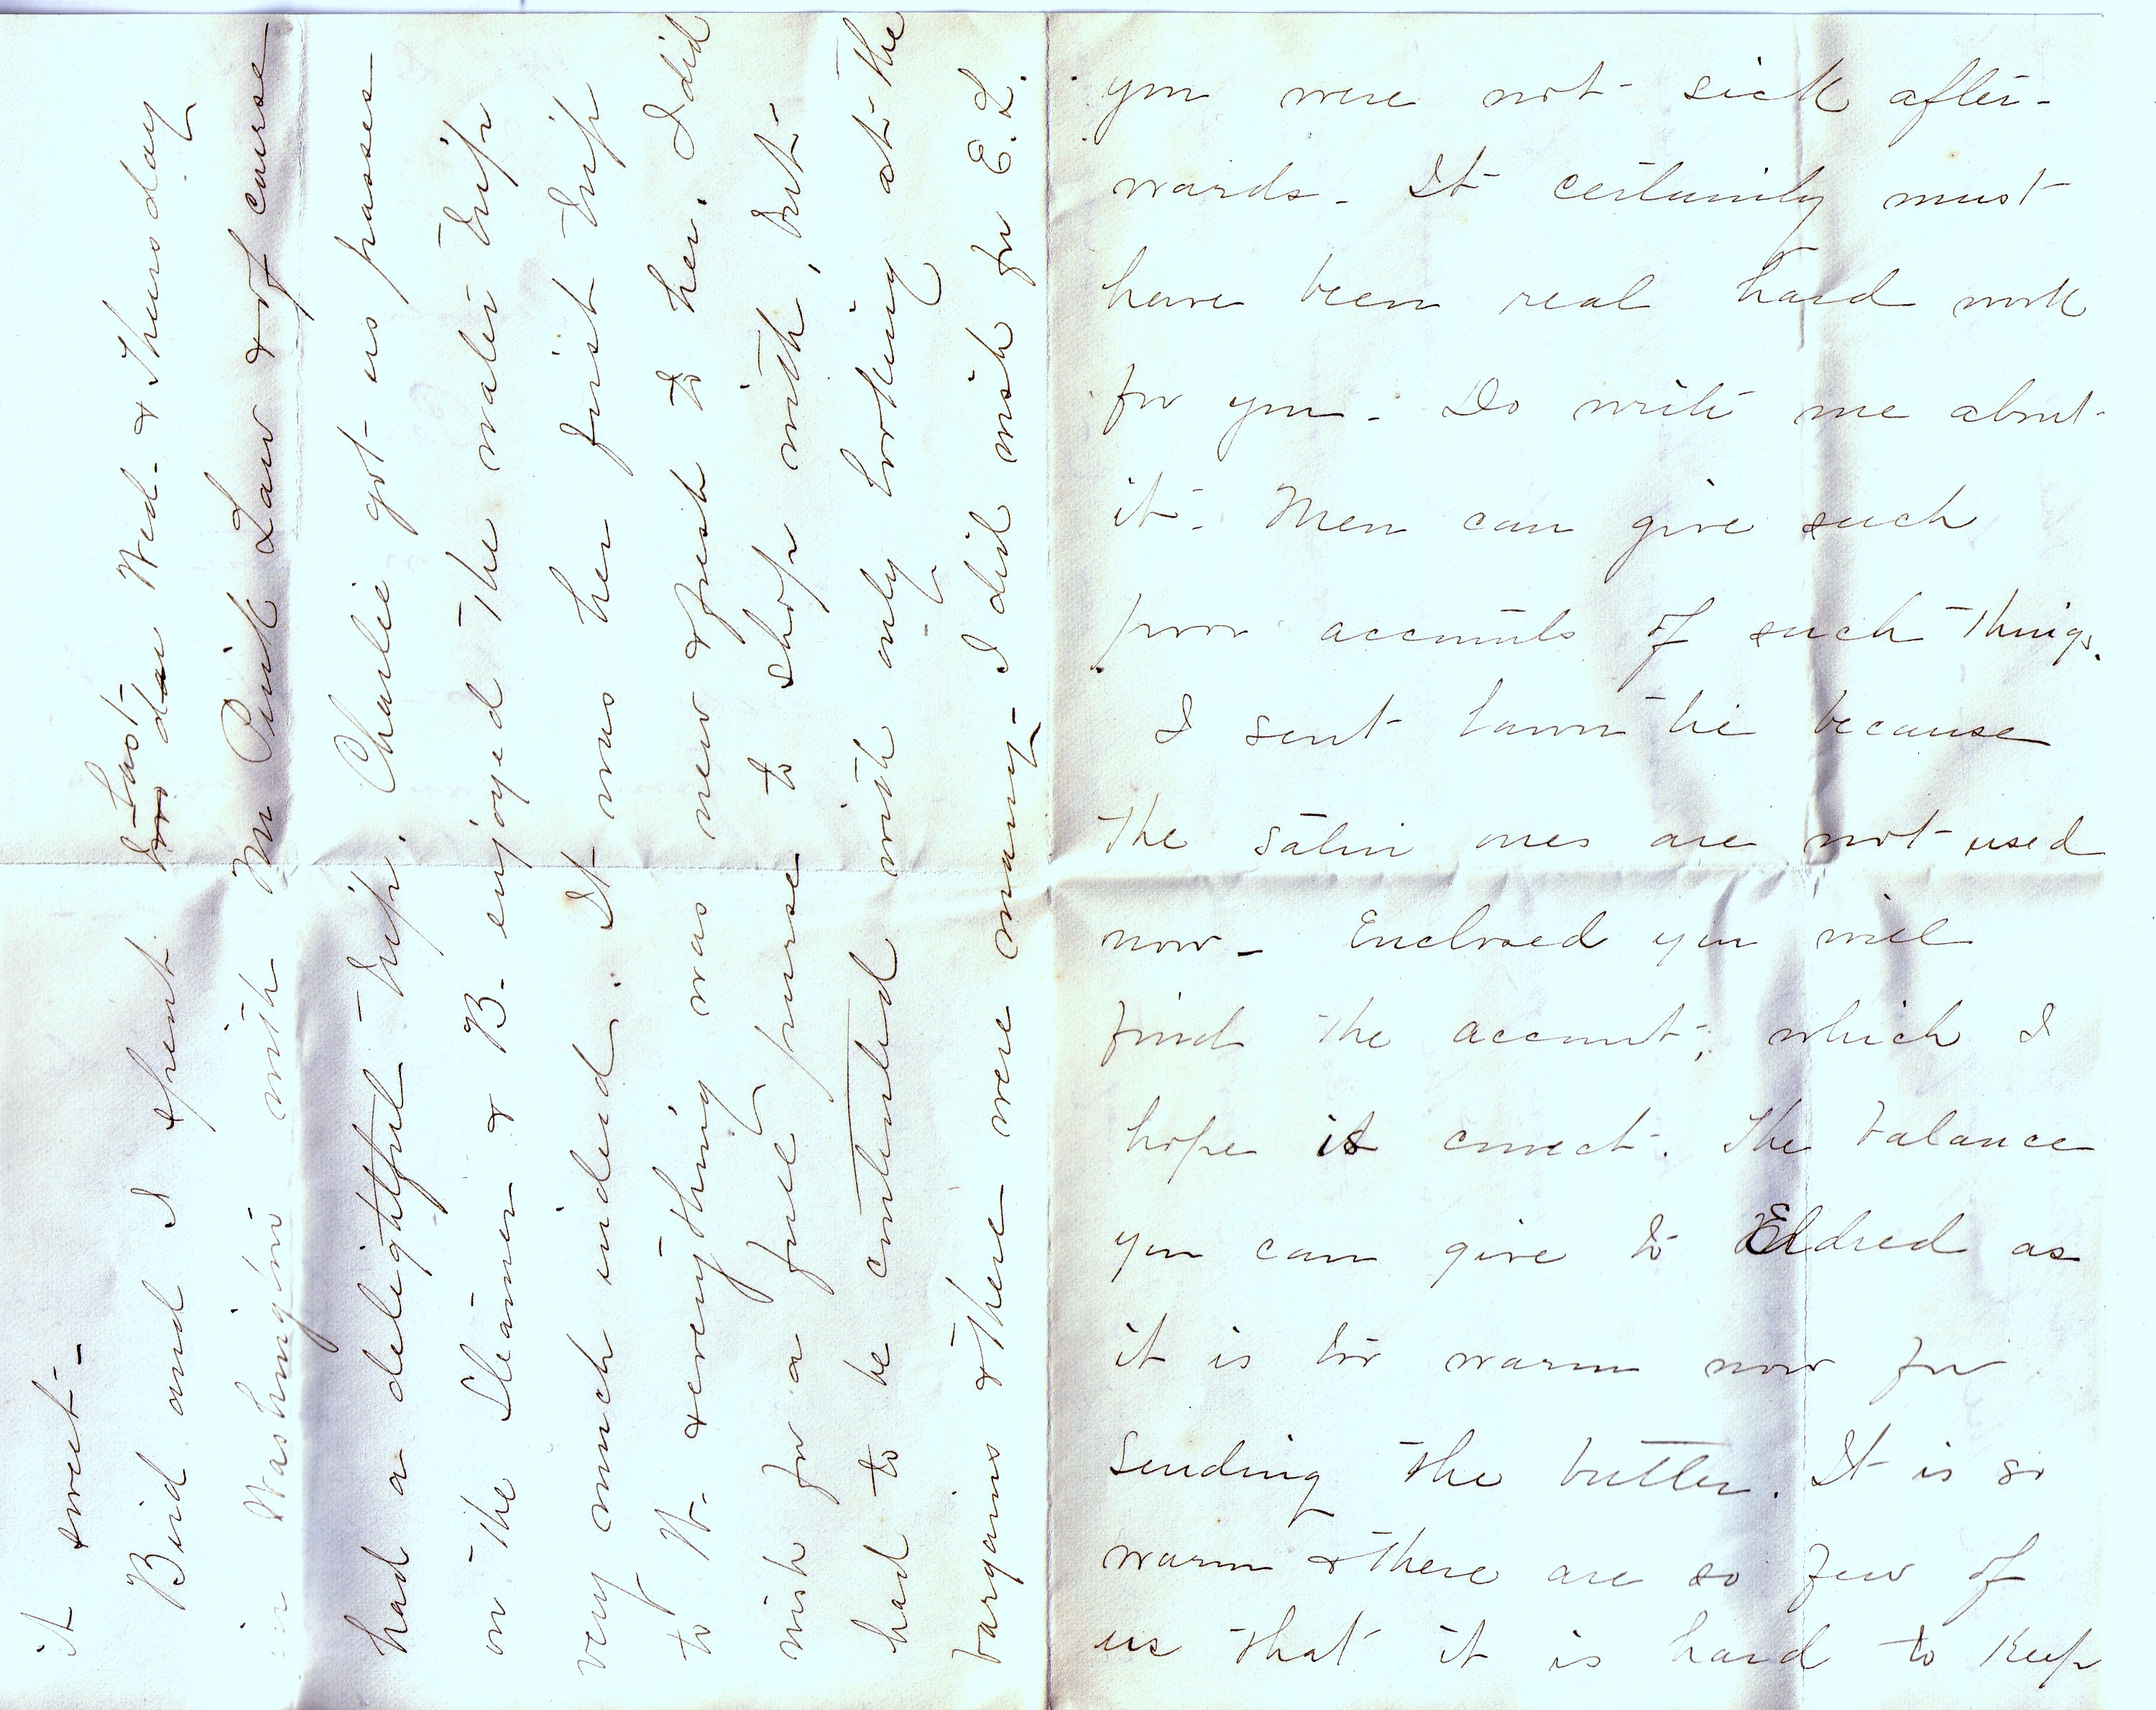 you were not sick after-
wards. It certainly must
have been real hard work
for you. Do write me about
it. Men can give such
poor accounts of such things.
I sent lawn tie because
the satin ones are not used
now. Enclosed you will
find the account, which I
hope is correct. The balance
you can give to Eldred as
it is too warm now for
sending the butter. It is so
warm & there are so few of
us that it is hard to keep
it sweet.
Bird and I spent last Wed. & Thursday
in Washington with Pink Law & of course
had a delightful trip. Charlie got us passes
on the Steamer & B. enjoyed the water trip
very much indeed. It was her first trip
to W. & everything was new & fresh to her. I did
wish for a full purse to shop with, but
had to be contented with only looking at the
bargains & there were many. I did wish for E. L.